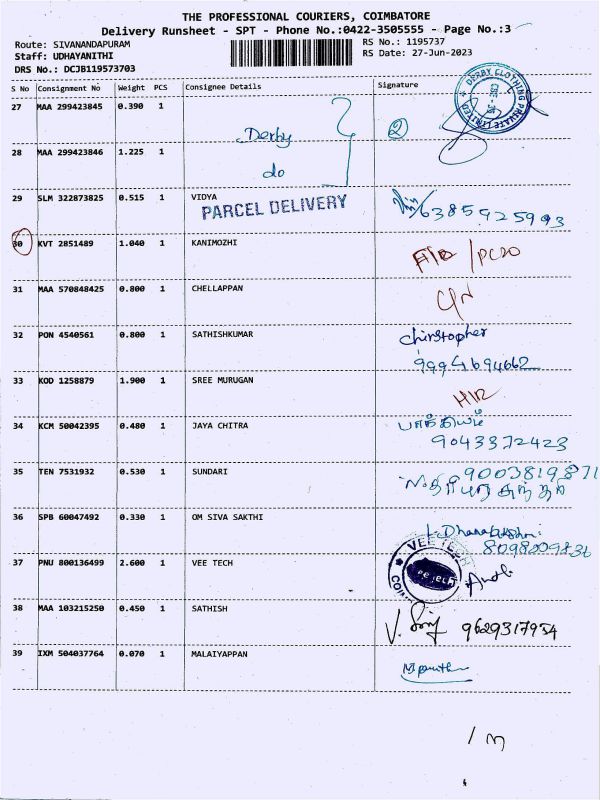 THE PROFESSIONAL COURIERS, COIMBATORE
Delivery Runsheet - SPT - Phone No.:0422-3505555 - Page No.:3
Route: SIVANANDAPURAM
RS No.: 1195737
Staff: UDHAYANITHI
RS Date: 27-Jun-2023
DRS No.: DCJB119573703
S No Consignment No Weight PCS Consignee Details Signature
27 MAA 299423845 0.390 1 Derby 2
DERBY CLOTHING PRIVATE LIMITED
28 MAA 299423846 1.225 1 do
29 SLM 322873825 0.515 1 VIDYA 6385925993
PARCEL DELIVERY
30 KVT 2851489 1.040 1 KANIMOZHI
31 MAA 570848425 0.800 1 CHELLAPPAN
32 PON 4540561 0.800 1 SATHISHKUMAR Chirstopher
9994694662
33 KOD 1258879 1.900 1 SREE MURUGAN
34 KCM 50042395 0.480 1 JAYA CHITRA பாக்கியம்
9043372423
35 TEN 7531932 0.530 1 SUNDARI 9003819871
36 SPB 60047492 0.330 1 OM SIVA SAKTHI
8098009836
37 PNU 800136499 2.600 1 VEE TECH VEE TECH
38 MAA 103215250 0.450 1 SATHISH 9629317954
39 IXM 504037764 0.070 1 MALAIYAPPAN